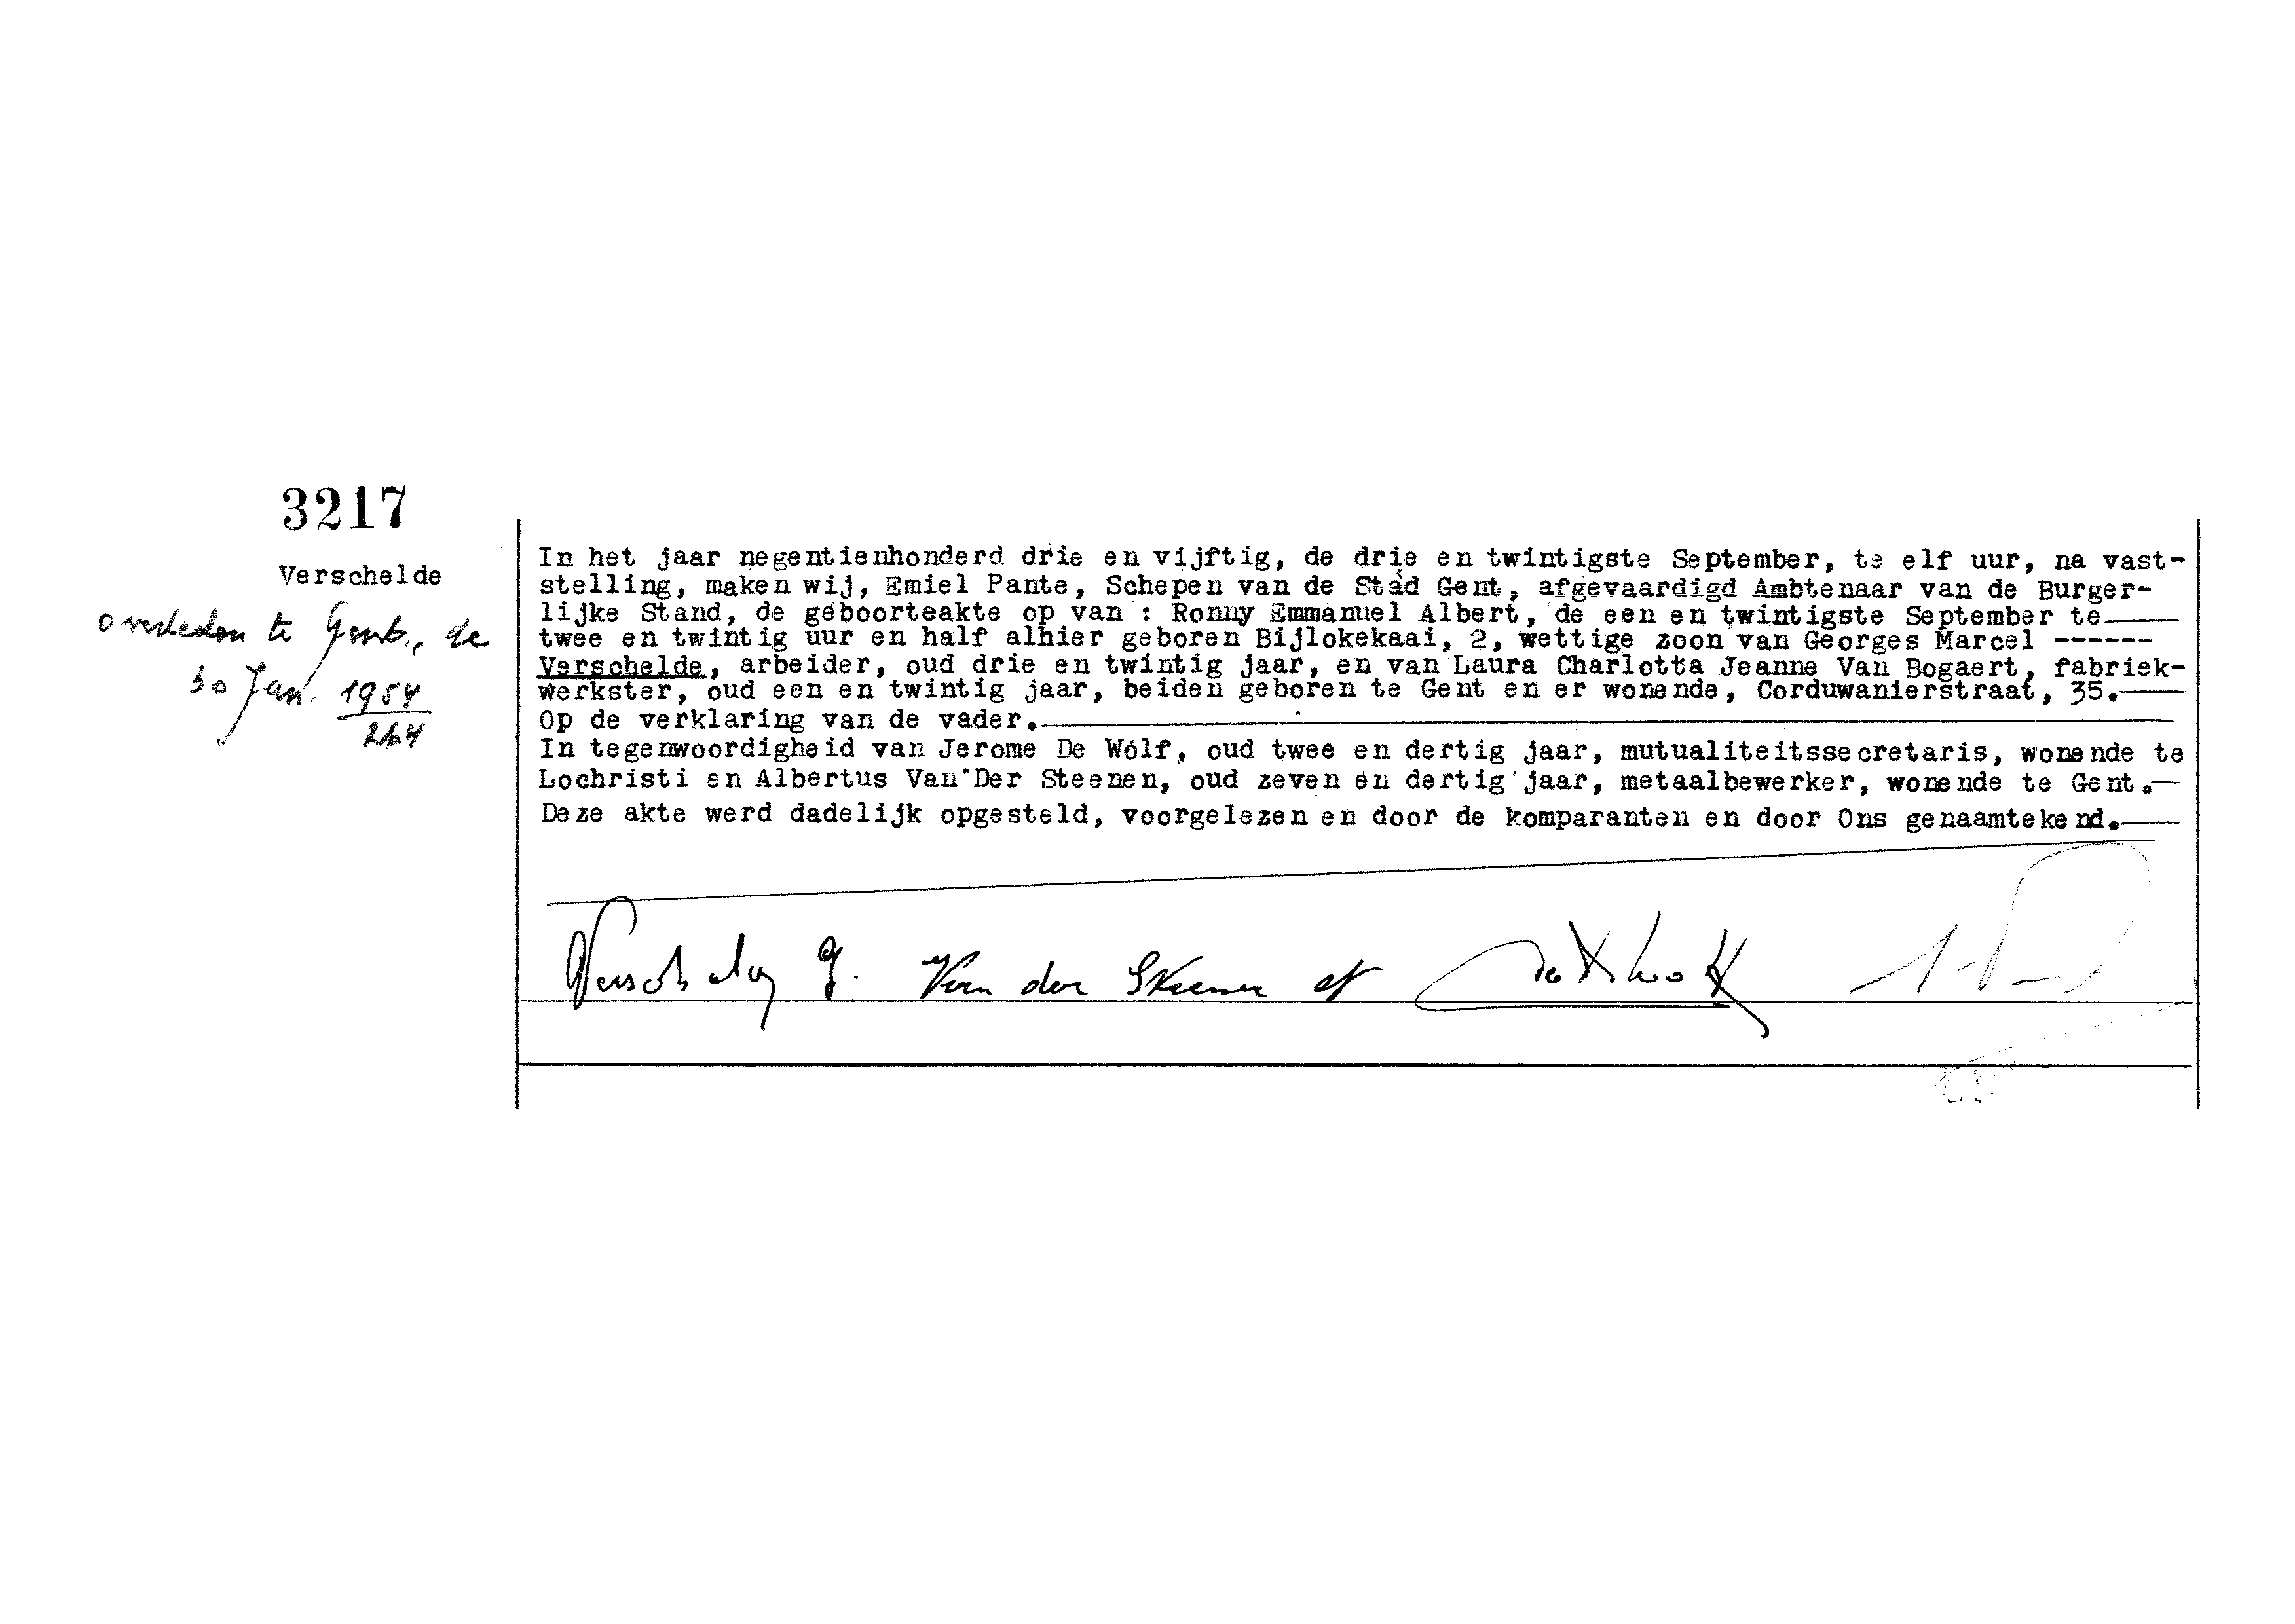 3217
Verschelde
overleden te Gent, de
30 Jan. 1954
264
In het jaar negentienhonderd drie en vijftig, de drie en twintigste September, te elf uur, na vast-
stelling, maken wij, Emiel Pante, Schepen van de Stad Gent, afgevaardigd Ambtenaar van de Burger-
lijke Stand, de geboorteakte op van : Ronny Emmanuel Albert, de een en twintigste September te
twee en twintig uur en half alhier geboren Bijlokekaai, 2, wettige zoon van Georges Marcel ------
Verschelde, arbeider, oud drie en twintig jaar, en van Laura Charlotta Jeanne Van Bogaert, fabriek-
werkster, oud een en twintig jaar, beiden geboren te Gent en er wonende, Corduwanierstraat, 35.
Op de verklaring van de vader.
In tegenwoordigheid van Jerome De Wolf, oud twee en dertig jaar, mutualiteitssecretaris, wonende te
Lochristi en Albertus Van Der Steenen, oud zeven en dertig jaar, metaalbewerker, wonende te Gent.
Deze akte werd dadelijk opgesteld, voorgelezen en door de komparanten en door Ons genaamtekend.
Van der Steenen